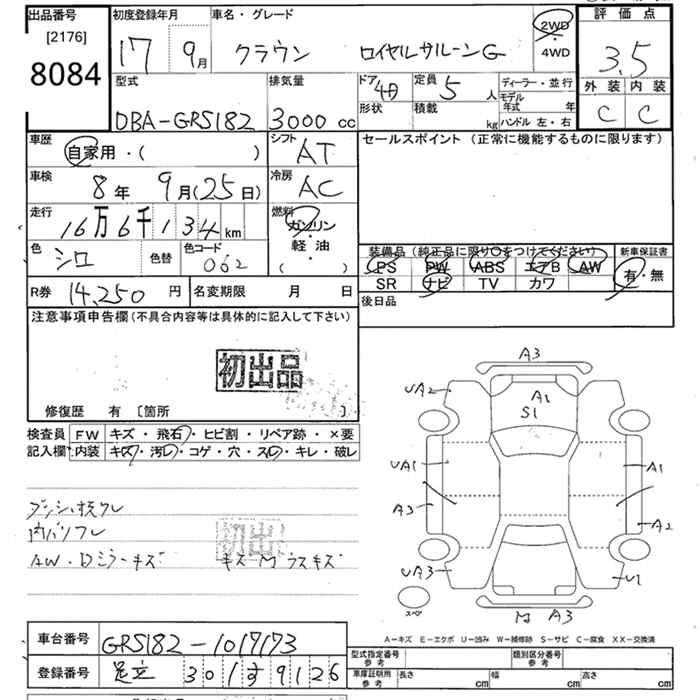 出品番号 初度登録年月 車名・グレード 評価点
[2176]
8084
17 9月 クラウン ロイヤルサルーンG 2WD 4WD 3.5
型式 排気量 ドア 4 定員 5人 ディーラー・並行 外装 内装
DBA-GRS182 3000cc 形状 積載 kg モデル年式 年 C C
ハンドル 左・右
車歴 シフト セールスポイント (正常に機能するものに限ります)
自家用・( ) AT
車検 冷房
8年 9月(25日) AC
走行 燃料
16万6千134km ガソリン・軽油
色 シロ 色替 色コード 062 ( )
装備品 (純正品に限り○をつけてください) 新車保証書
PS PW ABS エアB AW 有・無
SR ナビ TV カワ
R券 14,250円 名変期限 月 日 後日品
注意事項申告欄(不具合内容等は具体的に記入して下さい)
初出品
修復歴 有 [箇所 ]
検査員 FW キズ・飛石・ヒビ割・リペア跡・×要
記入欄 内装 キズ・汚レ・コゲ・穴・スレ・キレ・破レ
内バリスレ
初出
AW・Dミラーキズ
A3
UA2 A1
S1
UA1 A1
A3 A2
UA3 U1
スペア
A3
A-キズ E-エクボ U-凹み W-補修跡 S-サビ C-腐食 XX-交換済
車台番号 GRS182-1017173
登録番号 足立 301 す 9126
型式指定番号 参考 類別区分番号 参考
車庫証明用 参考 長さ cm 幅 cm 高さ cm